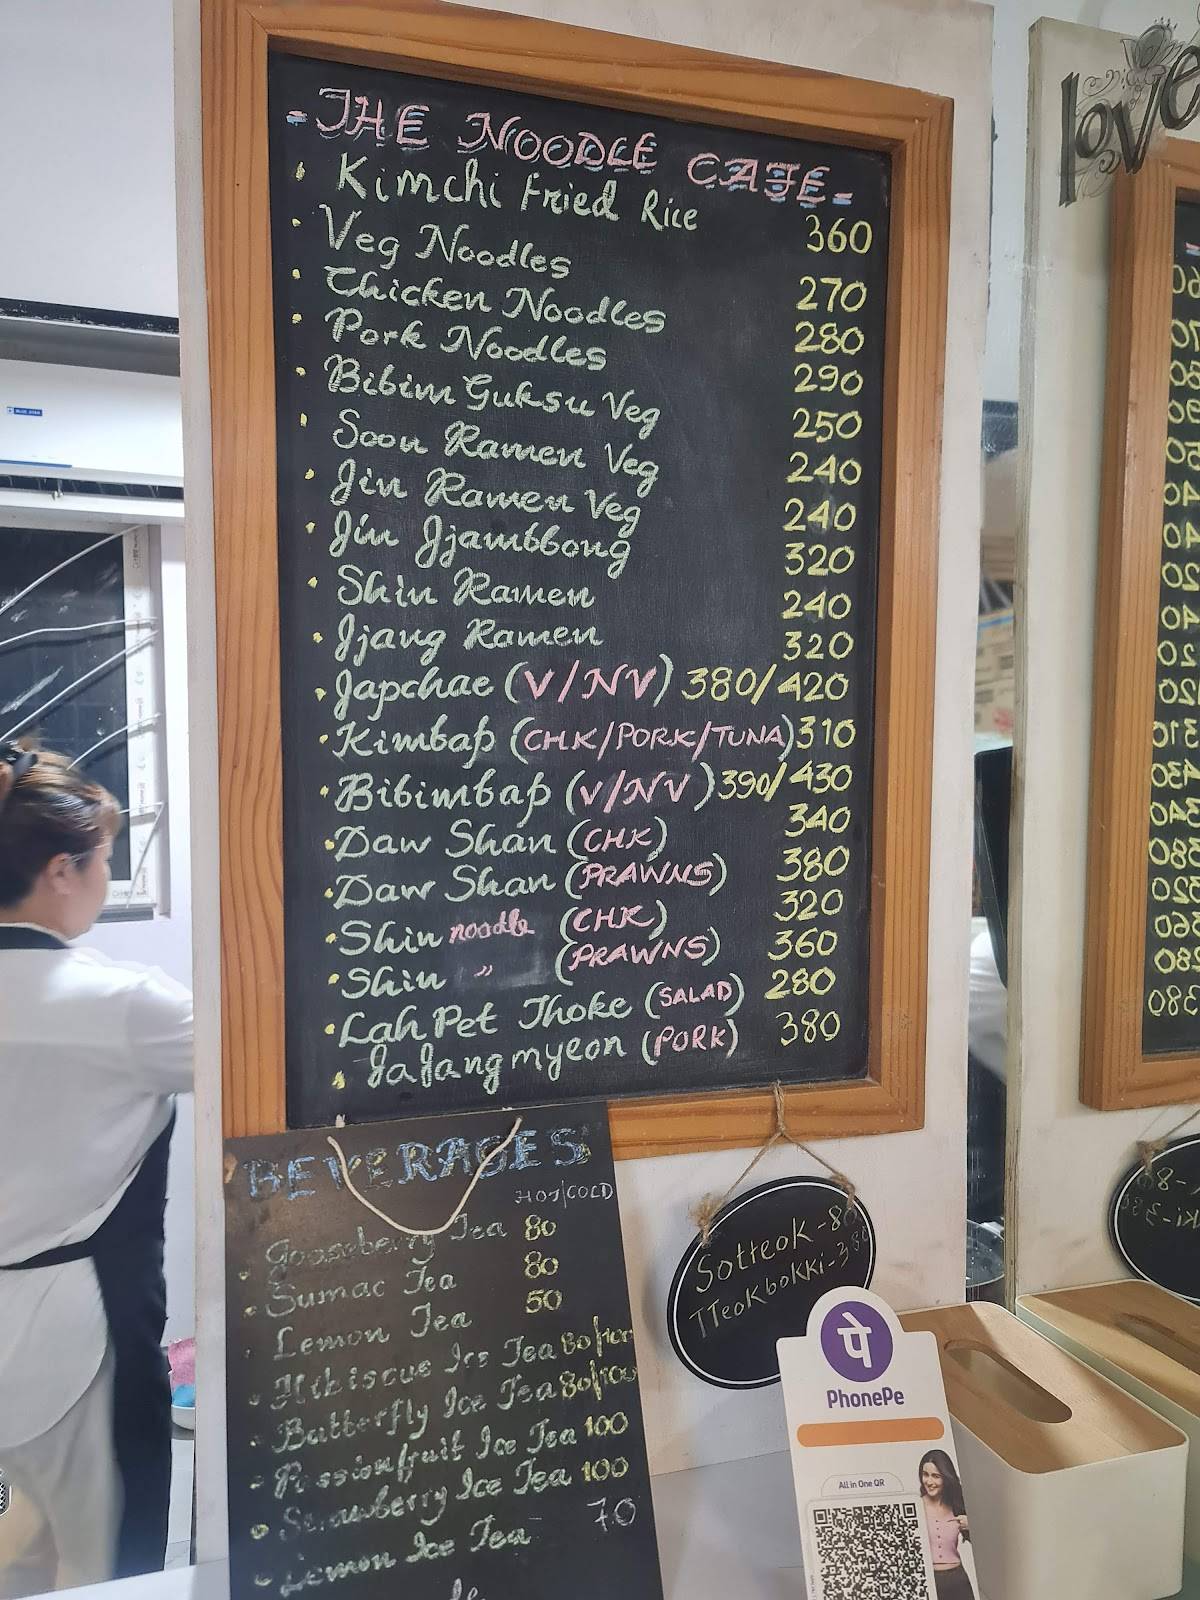 - THE NOODLE CAFE -
Kimchi Fried Rice 360
Veg Noodles 270
Chicken Noodles 280
Pork Noodles 290
Bibim Guksu Veg 250
Soon Ramen Veg 240
Jin Ramen Veg 240
Jin Jjambbong 320
Shin Ramen 240
Jjang Ramen 320
Japchae (V/NV) 380/420
Kimbap (CHK/PORK/TUNA) 310
Bibimbap (V/NV) 390/430
Daw Shan (CHK) 340
Daw Shan (PRAWNS) 380
Shin noodle (CHK) 320
Shin " (PRAWNS) 360
Lah Pet Thoke (SALAD) 280
JaJangmyeon (PORK) 380
BEVERAGES
HOT/COLD
Gooseberry Tea 80
Sumac Tea 80
Lemon Tea 50
Hibiscus Ice Tea 80/100
Butterfly Ice Tea 80/100
Passionfruit Ice Tea 100
Strawberry Ice Tea 100
Lemon Ice Tea 70
Sotteok - 80
TTeoKboKKi - 380
पे
PhonePe
All in One QR
love